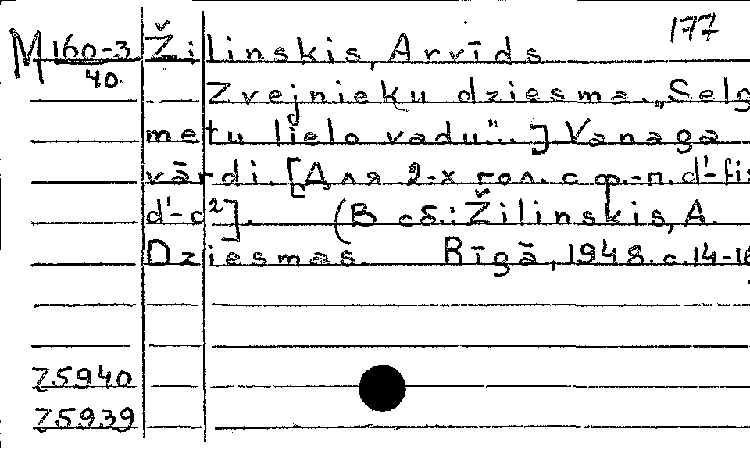 177
M 160-3 Žilinskis, Arvīds
40.
Zvejnieku dziesma. „Selg
metu lielo vadu". J Vanaga
vārdi. [Для 2-х гол. с ф.-п. d¹-fis
d¹-c²]. (В сб.: Žilinskis, A.
Dziesmas. Rīgā, 1948. с. 14-16
75940
75939